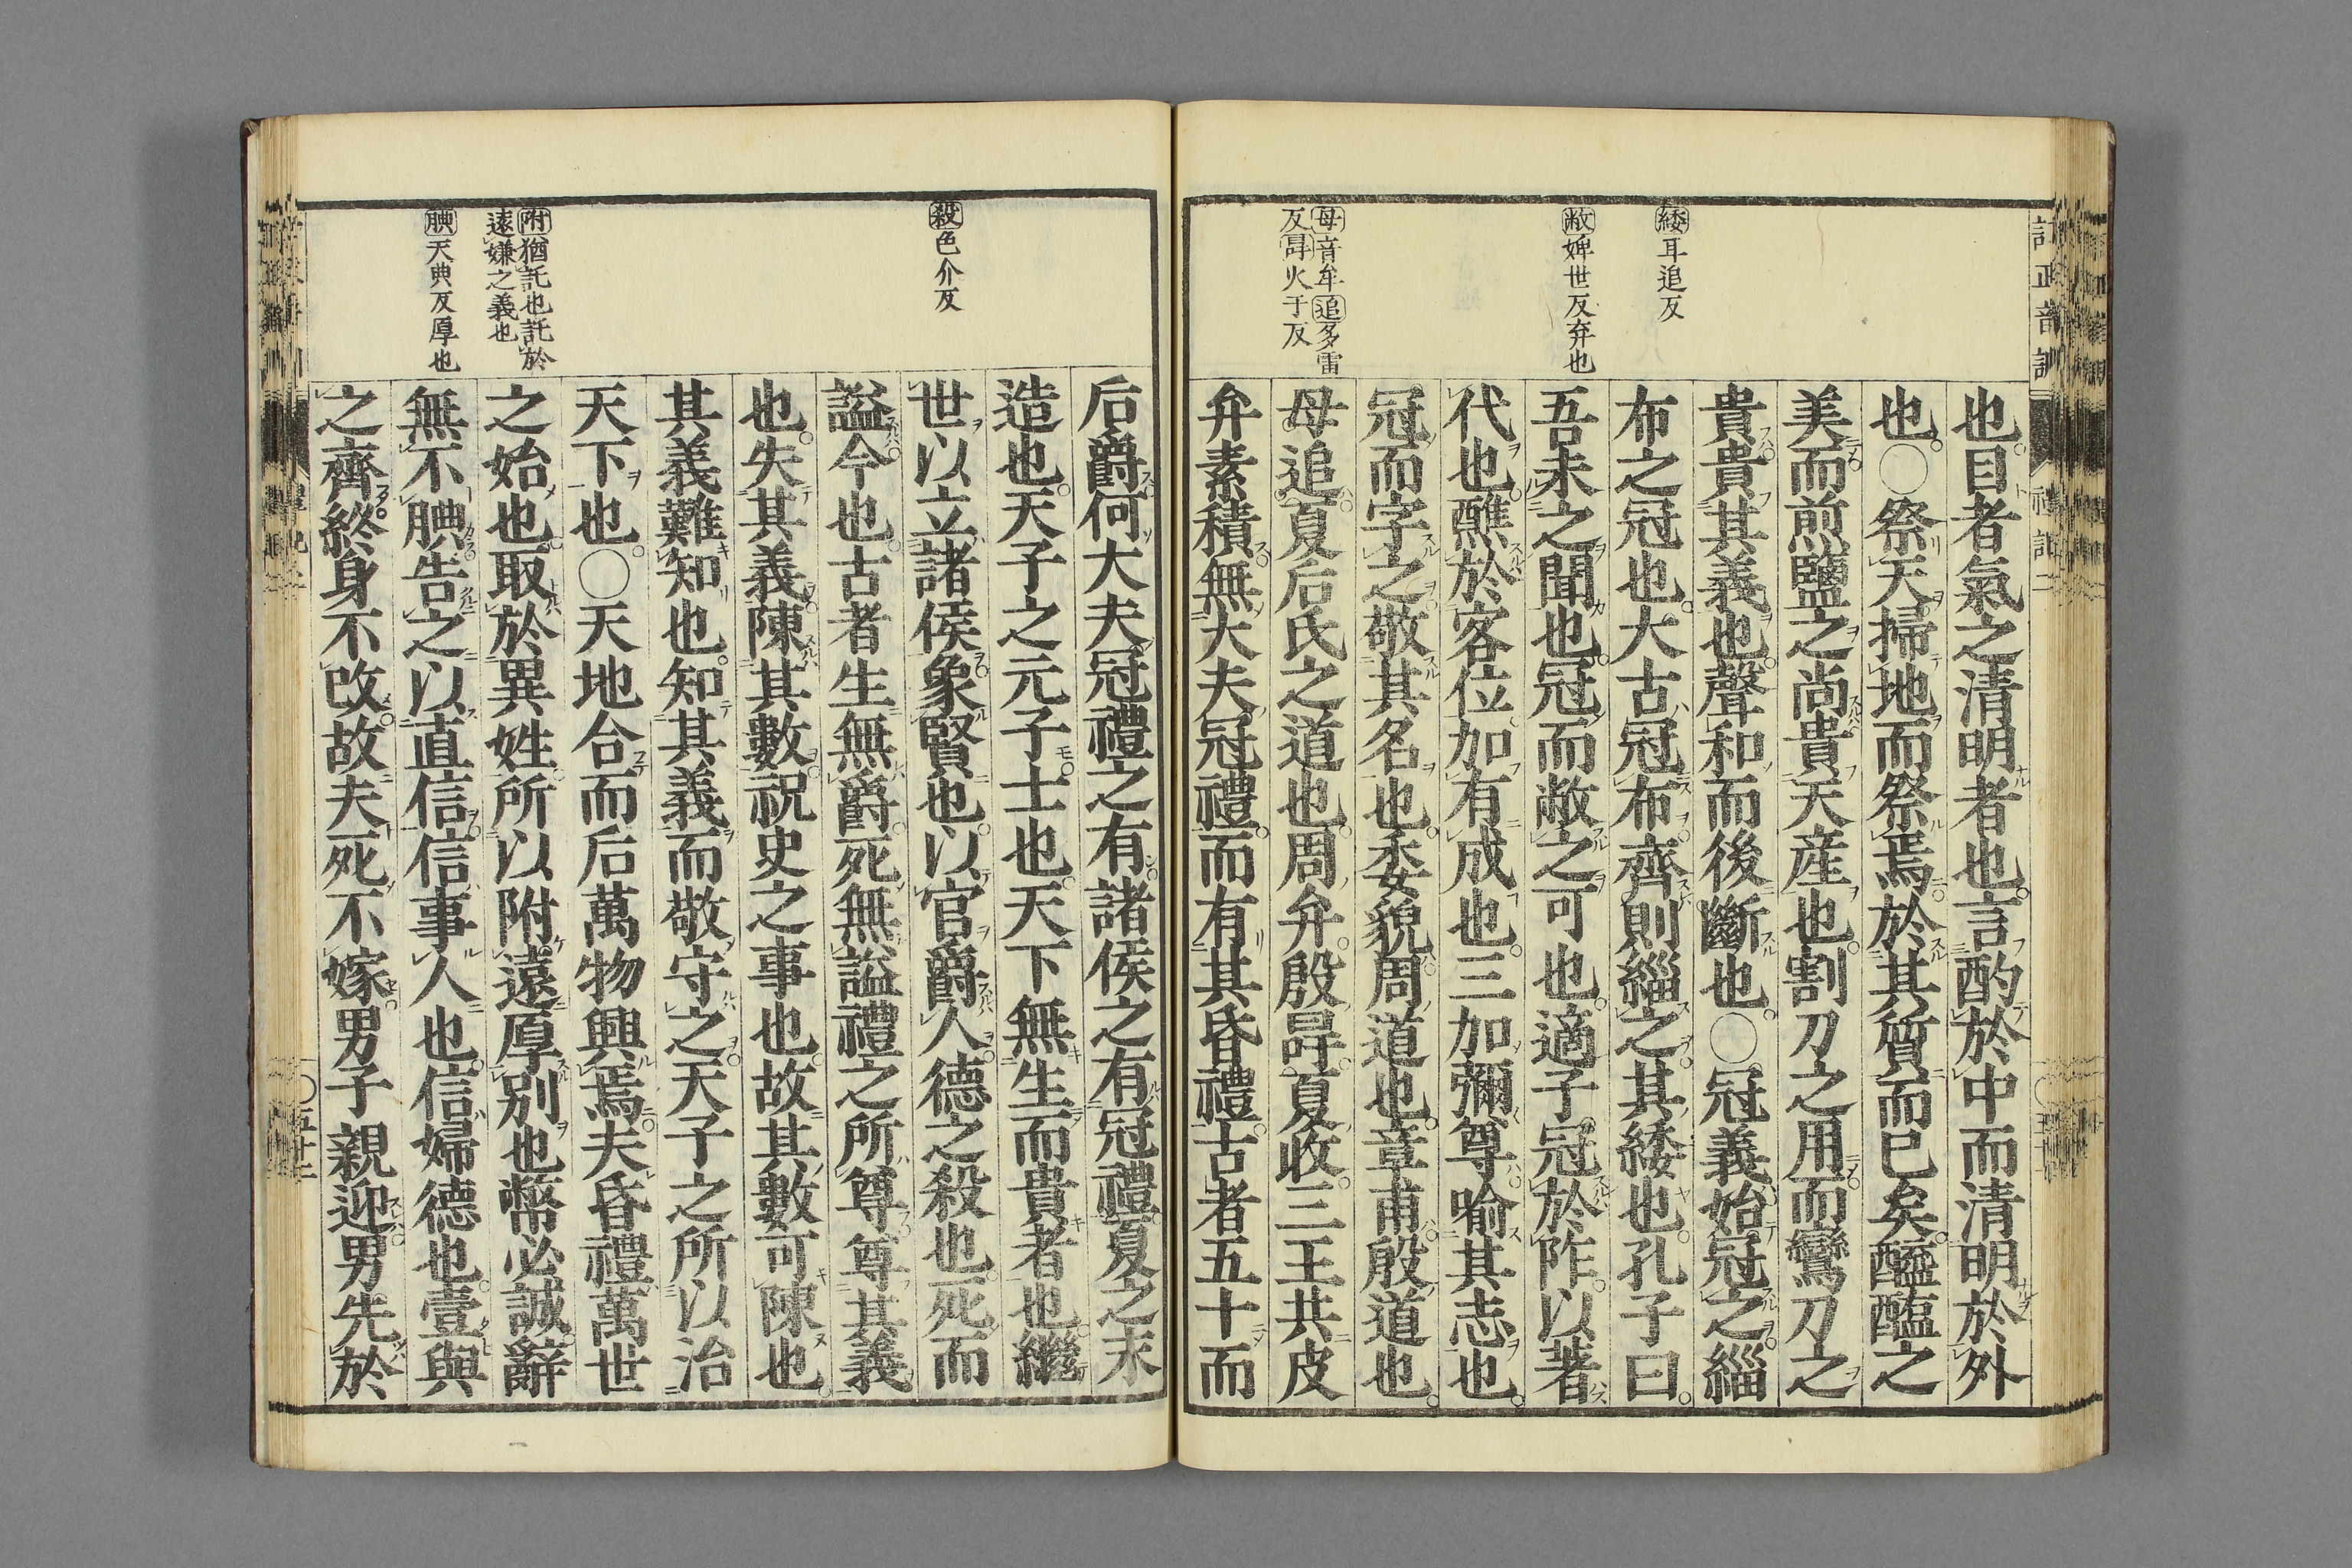 訂正音訓
禮記二
緌耳追反
敝婢世反弃也
毋音牟追多雷
反冔火于反
也目者氣之清明者也言酌於中而清明於外
也○祭天掃地而祭焉於其質而已矣醯醢之
美而煎鹽之尚貴天産也割刀之用而鸞刀之
貴貴其義也聲和而後斷也○冠義始冠之緇
布之冠也大古冠布齊則緇之其緌也孔子曰
吾未之聞也冠而敝之可也適子冠於阼以著
代也醮於客位加有成也三加彌尊喻其志也
冠而字之敬其名也委貌周道也章甫殷道也
毋追夏后氏之道也周弁殷冔夏收三王共皮
弁素積無大夫冠禮而有其昏禮古者五十而
殺色介反
附猶託也託於
遠嫌之義也
腆天典反厚也
后爵何大夫冠禮之有諸侯之有冠禮夏之末
造也天子之元子士也天下無生而貴者也繼
世以立諸侯象賢也以官爵人德之殺也死而
謚今也古者生無爵死無謚禮之所尊尊其義
也失其義陳其數祝史之事也故其數可陳也
其義難知也知其義而敬守之天子之所以治
天下也○天地合而后萬物興焉夫昏禮萬世
之始也取於異姓所以附遠厚別也幣必誠辭
無不腆告之以直信信事人也信婦德也壹與
之齊終身不改故夫死不嫁男子親迎男先於